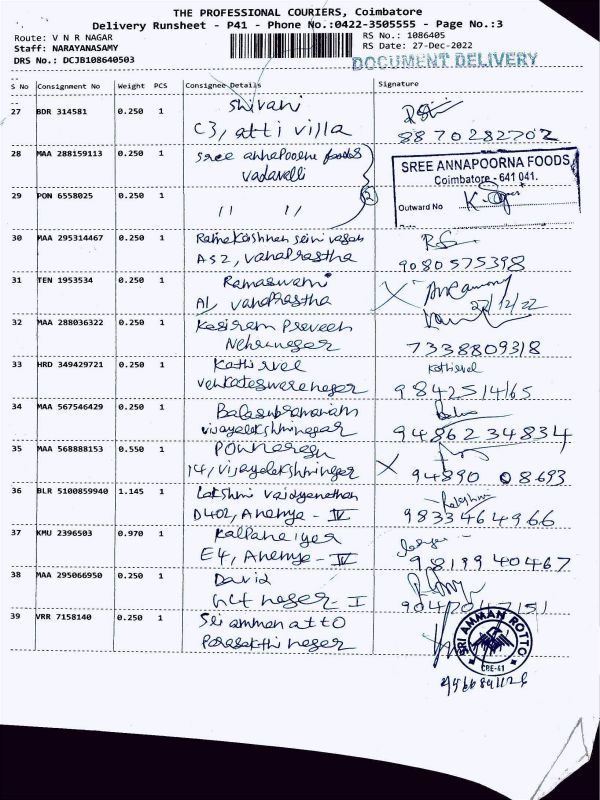 THE PROFESSIONAL COURIERS, Coimbatore
Delivery Runsheet - P41 - Phone No.:0422-3505555 - Page No.:3
Route: V N R NAGAR
RS No.: 1086405
Staff: NARAYANASAMY
RS Date: 27-Dec-2022
DRS No.: DCJB108640503
DOCUMENT DELIVERY
S No Consignment No Weight PCS Consignee Details Signature
27 BDR 314581 0.250 1 Shivani
C3, atti villa 8870282702
28 MAA 288159113 0.250 1 Sree annapoorna foods
vadavelli
SREE ANNAPOORNA FOODS
Coimbatore - 641 041.
29 PON 6558025 0.250 1 " " 2
Outward No
Date
30 MAA 295314467 0.250 1 Ramakrishnan seni vasan
AS2, vanaprastha 9080575398
31 TEN 1953534 0.250 1 Ramaswami
A1, vanaprastha 27/12/22
32 MAA 288036322 0.250 1 Kasiram Praveen
Nehrunagar 7338809318
33 HRD 349429721 0.250 1 Kathirvel Kathirvel
venkateswarenager 9842514165
34 MAA 567546429 0.250 1 Balasubramaniam
vijayalakshminagar 9486234834
35 MAA 568888153 0.550 1
14, vijayalakshminager 94890 08693
36 BLR 5100859940 1.145 1 Lakshmi vaidyanathan
D402, Ananya - IV 9833464966
37 KMU 2396503 0.970 1 Kalpana iyer
E4, Ananya - IV 9819940467
38 MAA 295066950 0.250 1 David
GCT nager - I
39 VRR 7158140 0.250 1 Sri amman atto
Parasakthi nager
SRI AMMAN ROTTO
CBE-41